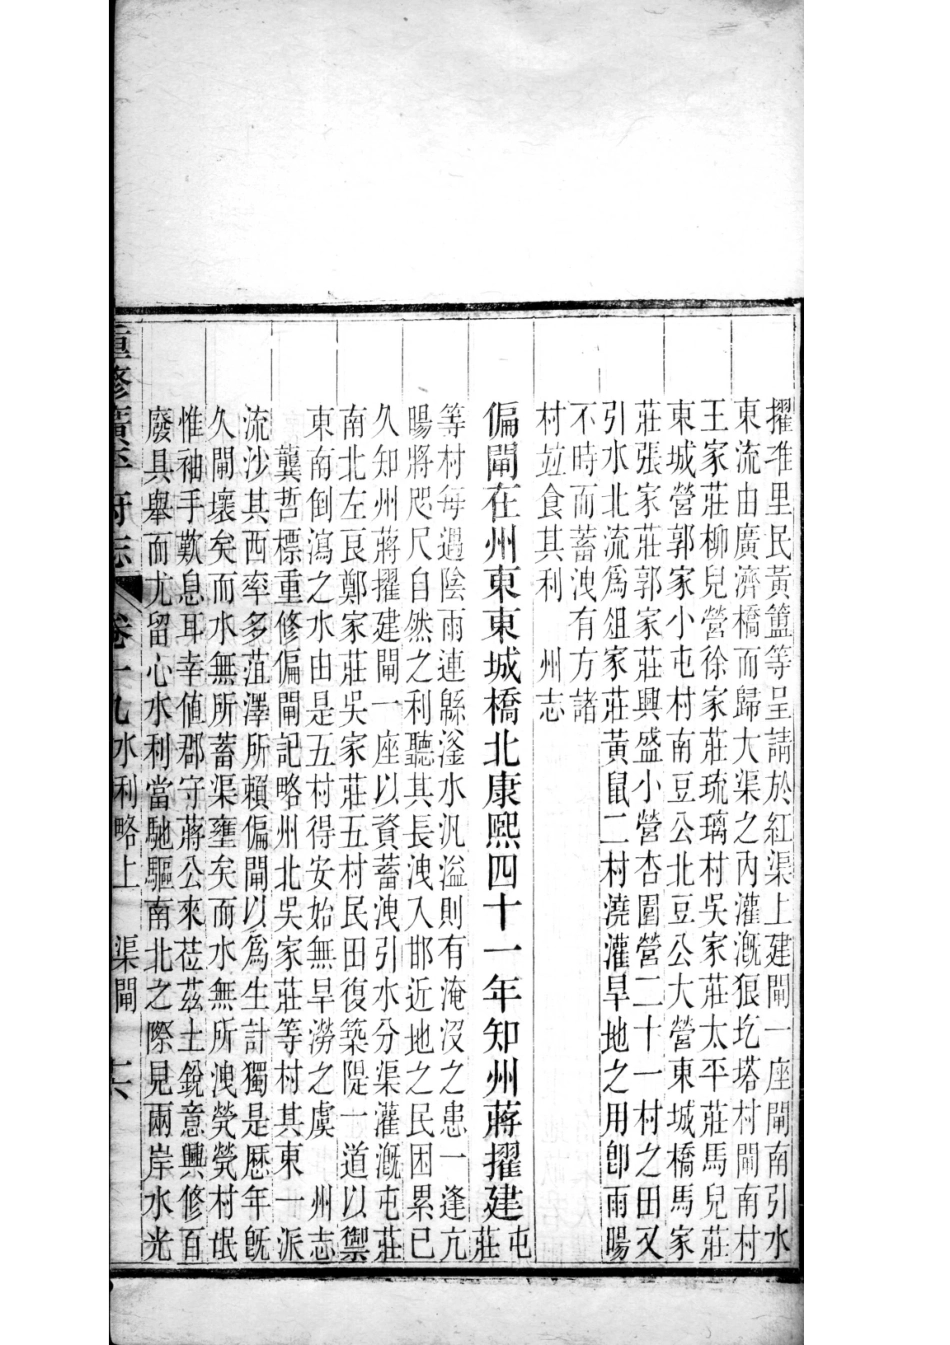 擢進里民黃簠等呈請於紅渠上建閘一座閘南引水
東流由廣濟橋而歸大渠之內灌漑狼圪塔村閘南村
王家莊柳兒營徐家莊琉璃村吳家莊太平莊馬兒莊
東城營郭家小屯村南豆公北豆公大營東城橋馬家
莊張家莊郭家莊興盛小營杏園營二十一村之田又
引水北流爲俎家莊黃鼠二村澆灌旱地之用卽雨暘
不時而蓄洩有方諸
村並食其利　州志
偏閘在州東東城橋北康熙四十一年知州蔣擢建
屯
莊
等村每遇陰雨連緜滏水汎溢則有淹沒之患一逢亢
暘將咫尺自然之利聽其長洩入邯近地之民困累已
久知州蔣擢建閘一座以資蓄洩引水分渠灌漑屯莊
南北左良鄭家莊吳家莊五村民田復築隄一道以禦
東南倒瀉之水由是五村得安始無旱澇之虞　州志
龔哲標重修偏閘記略州北吳家莊等村其東一派
流沙其西率多菹澤所賴偏閘以爲生計獨是歷年旣
久閘壞矣而水無所蓄渠壅矣而水無所洩煢煢村氓
惟袖手歎息耳幸値郡守蔣公來莅茲土銳意興修百
廢具舉而尤留心水利當馳驅南北之際見兩岸水光
重修廣平府志　卷十九　水利略上　渠閘　十六